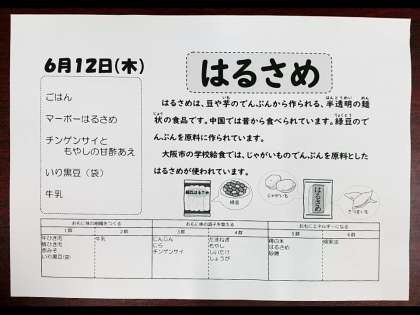 6月12日(木)
ごはん
マーボーはるさめ
チンゲンサイと
もやしの甘酢あえ
いり黒豆(袋)
牛乳
はるさめ
はるさめは、豆や芋のでんぷんから作られる、半透明の麺
状の食品です。中国では昔から食べられています。緑豆ので
んぷんを原料に作られています。
大阪市の学校給食では、じゃがいものでんぷんを原料とした
はるさめが使われています。
緑豆はるさめ
緑豆
じゃがいも
はるさめ
さつまいも
おもに体の組織をつくる
おもに体の調子を整える
おもにエネルギーになる
1群
2群
3群
4群
5群
6群
牛ひき肉
豚ひき肉
赤みそ
いり黒豆(袋)
牛乳
にんじん
にら
チンゲンサイ
たまねぎ
もやし
しいたけ
しょうが
精白米
はるさめ
砂糖
綿実油